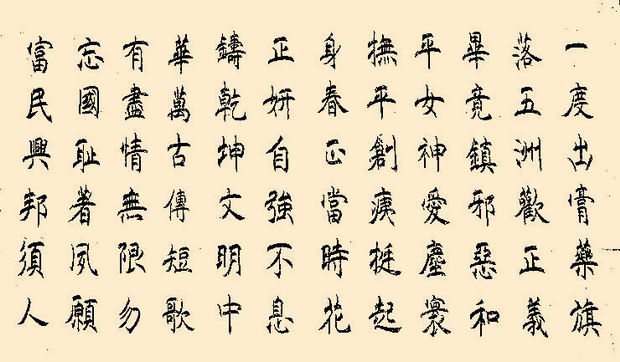 一度出膏藥旗
落五洲歡正義
畢竟鎮邪惡和
平女神愛塵寰
撫平創痍挺起
身春正當時花
正妍自強不息
鑄乾坤文明中
華萬古傳短歌
有盡情無限勿
忘國耻著夙願
富民興邦須人